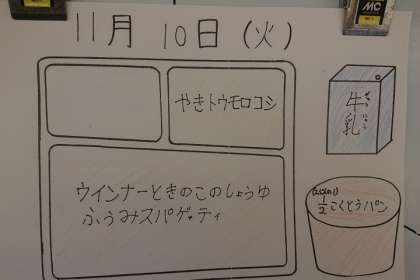 11月 10日(火)
やきトウモロコシ
ウインナーときのこのしょうゆ
ふうみスパゲッティ
牛乳
1/2 こくとうパン
MC